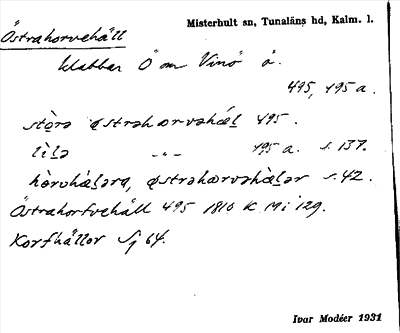 Östrahorvehäll
Misterhult sn, Tunaläns hd, Kalm. l.
klabbar Ö om Vinö ö.
495, 495 a.
stòrə østrəhɷrvəhǽḷ 495.
lìlə —"— 495 a. s. 137.
østrəhɷrvəhæ̀ḷər s. 42.
Östrahorfvehäll 495 1810 K Mi 129.
Korfhällor Sj 64.
Ivar Modéer 1931